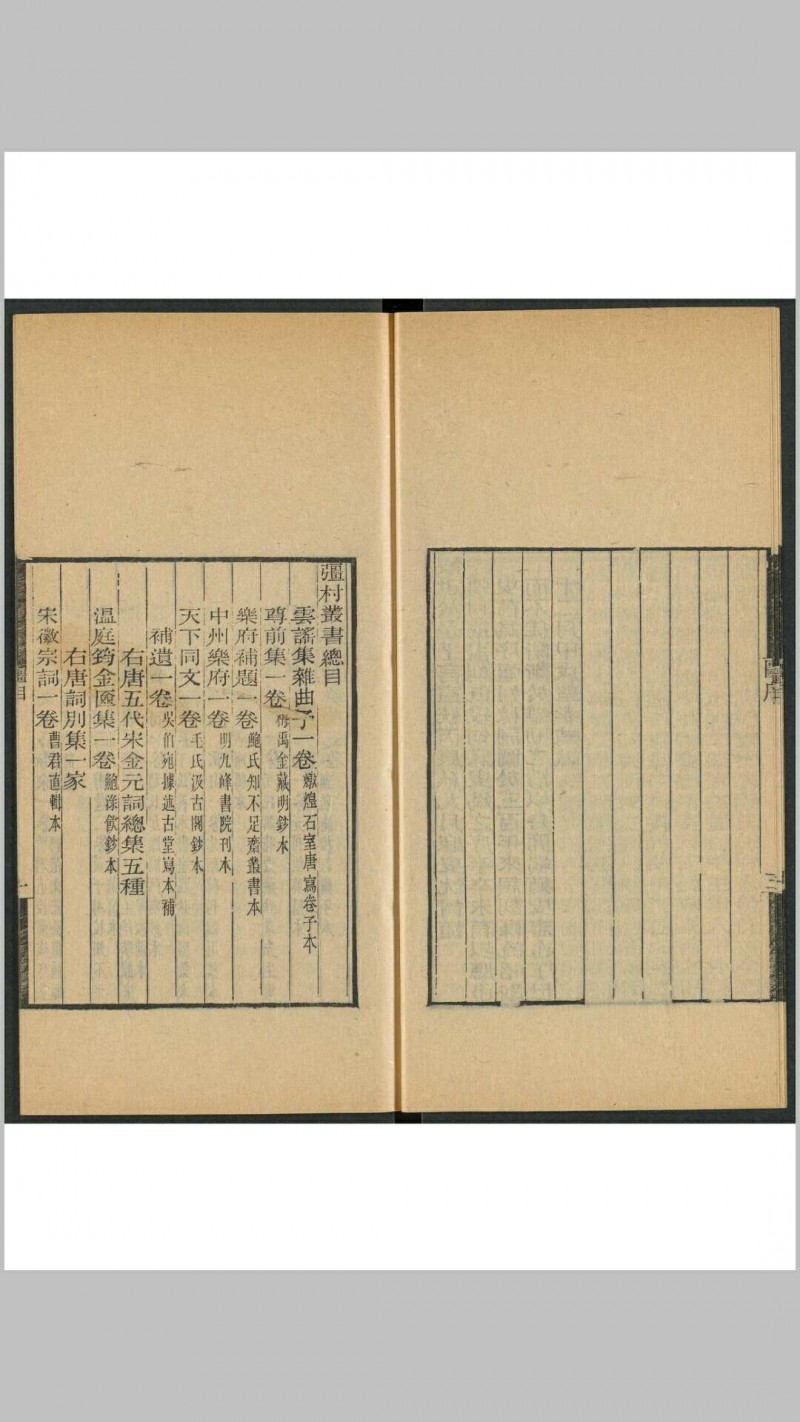 彊村叢書總目
雲謠集雜曲子一卷 燉煌石室唐寫卷子本
尊前集一卷 梅禹金藏明鈔本
樂府補題一卷 鮑氏知不足齋叢書本
中州樂府一卷 明九峰書院刊本
天下同文一卷 毛氏汲古閣鈔本
補遺一卷 吳伯宛據蓮古堂寫本補
右唐五代宋金元詞總集五種
温庭筠金匳集一卷 鮑淥飮鈔本
右唐詞別集一家
宋徽宗詞一卷 曹君直輯本